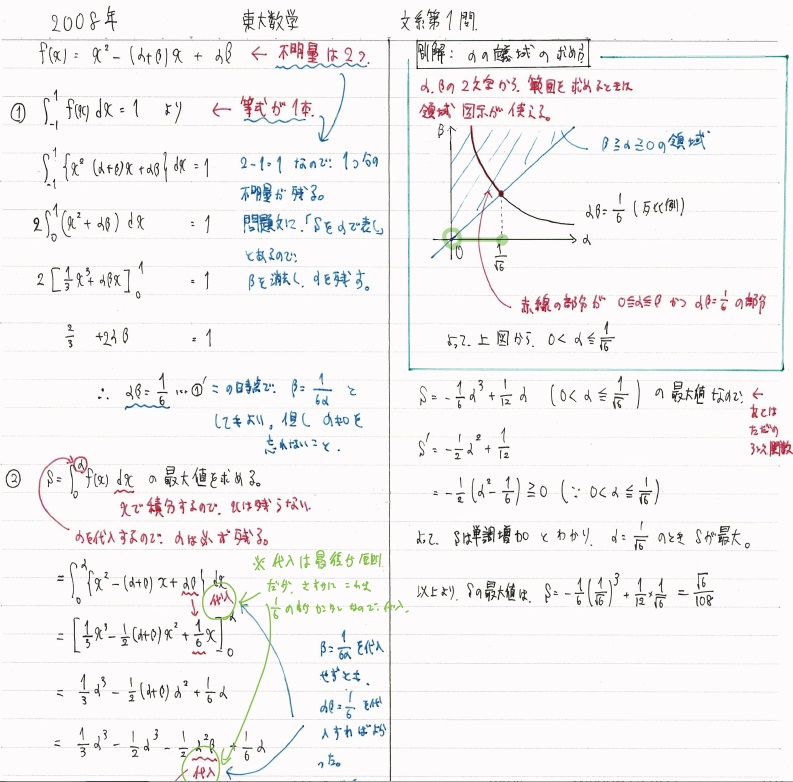 2008年 東大数学 文系第1問.
f(x) = x² − (α+β)x + αβ ← 不明量は2つ.
① ∫₋₁¹ f(x) dx = 1 より ← 等式が1本.
∫₋₁¹ {x² (α+β)x + αβ} dx = 1
2−1=1 なので. 1つ分の
不明量が残る。
2∫₀¹ (x² + αβ) dx = 1
問題文に.「Sをαで表し」
とあるので.
2 [⅓x³ + αβx]₀¹ = 1
βを消去し、αを残す。
2/3 + 2αβ = 1
∴ αβ = 1/6 …①′
この時点で. β = 1/6α と
してもよい。但し α≠0を
忘れないこと.
② S = ∫₀^α f(x) dx の最大値を求める。
xで積分するので. xは残らない.
αを代入するので. αは必ず残る。
※ 代入は最後が原則
= ∫₀^α {x² − (α+β)x + αβ} dx
代入
= [⅓x³ − ½(α+β)x² + 1/6 x]₀^α
β = 1/6α を代入
せずとも.
αβ = 1/6 を代
入すればよか
った。
= ⅓α³ − ½(α+β)α² + 1/6 α
= ⅓α³ − ½α³ − ½α²β + 1/6 α
代入
別解: αの領域の求め方
α.βの2文字から. 範囲を求めるときは
領域図示が使える。
β
β≧α≧0の領域
αβ = 1/6 (反比例)
0
α
1/√6
赤線の部分が 0≦α≦β かつ αβ=1/6 の部分
よって. 上図から. 0 < α ≦ 1/√6
S = −1/6 α³ + 1/12 α (0 < α ≦ 1/√6) の最大値なので. ←
あとは
ただの
3次関数
S′ = −½α² + 1/12
= −½(α² − 1/6) ≧ 0 (∵ 0 < α ≦ 1/√6)
よって. Sは単調増加とわかり. α = 1/√6 のとき Sが最大。
以上より. Sの最大値は. S = −1/6 (1/√6)³ + 1/12 × 1/√6 = √6/108